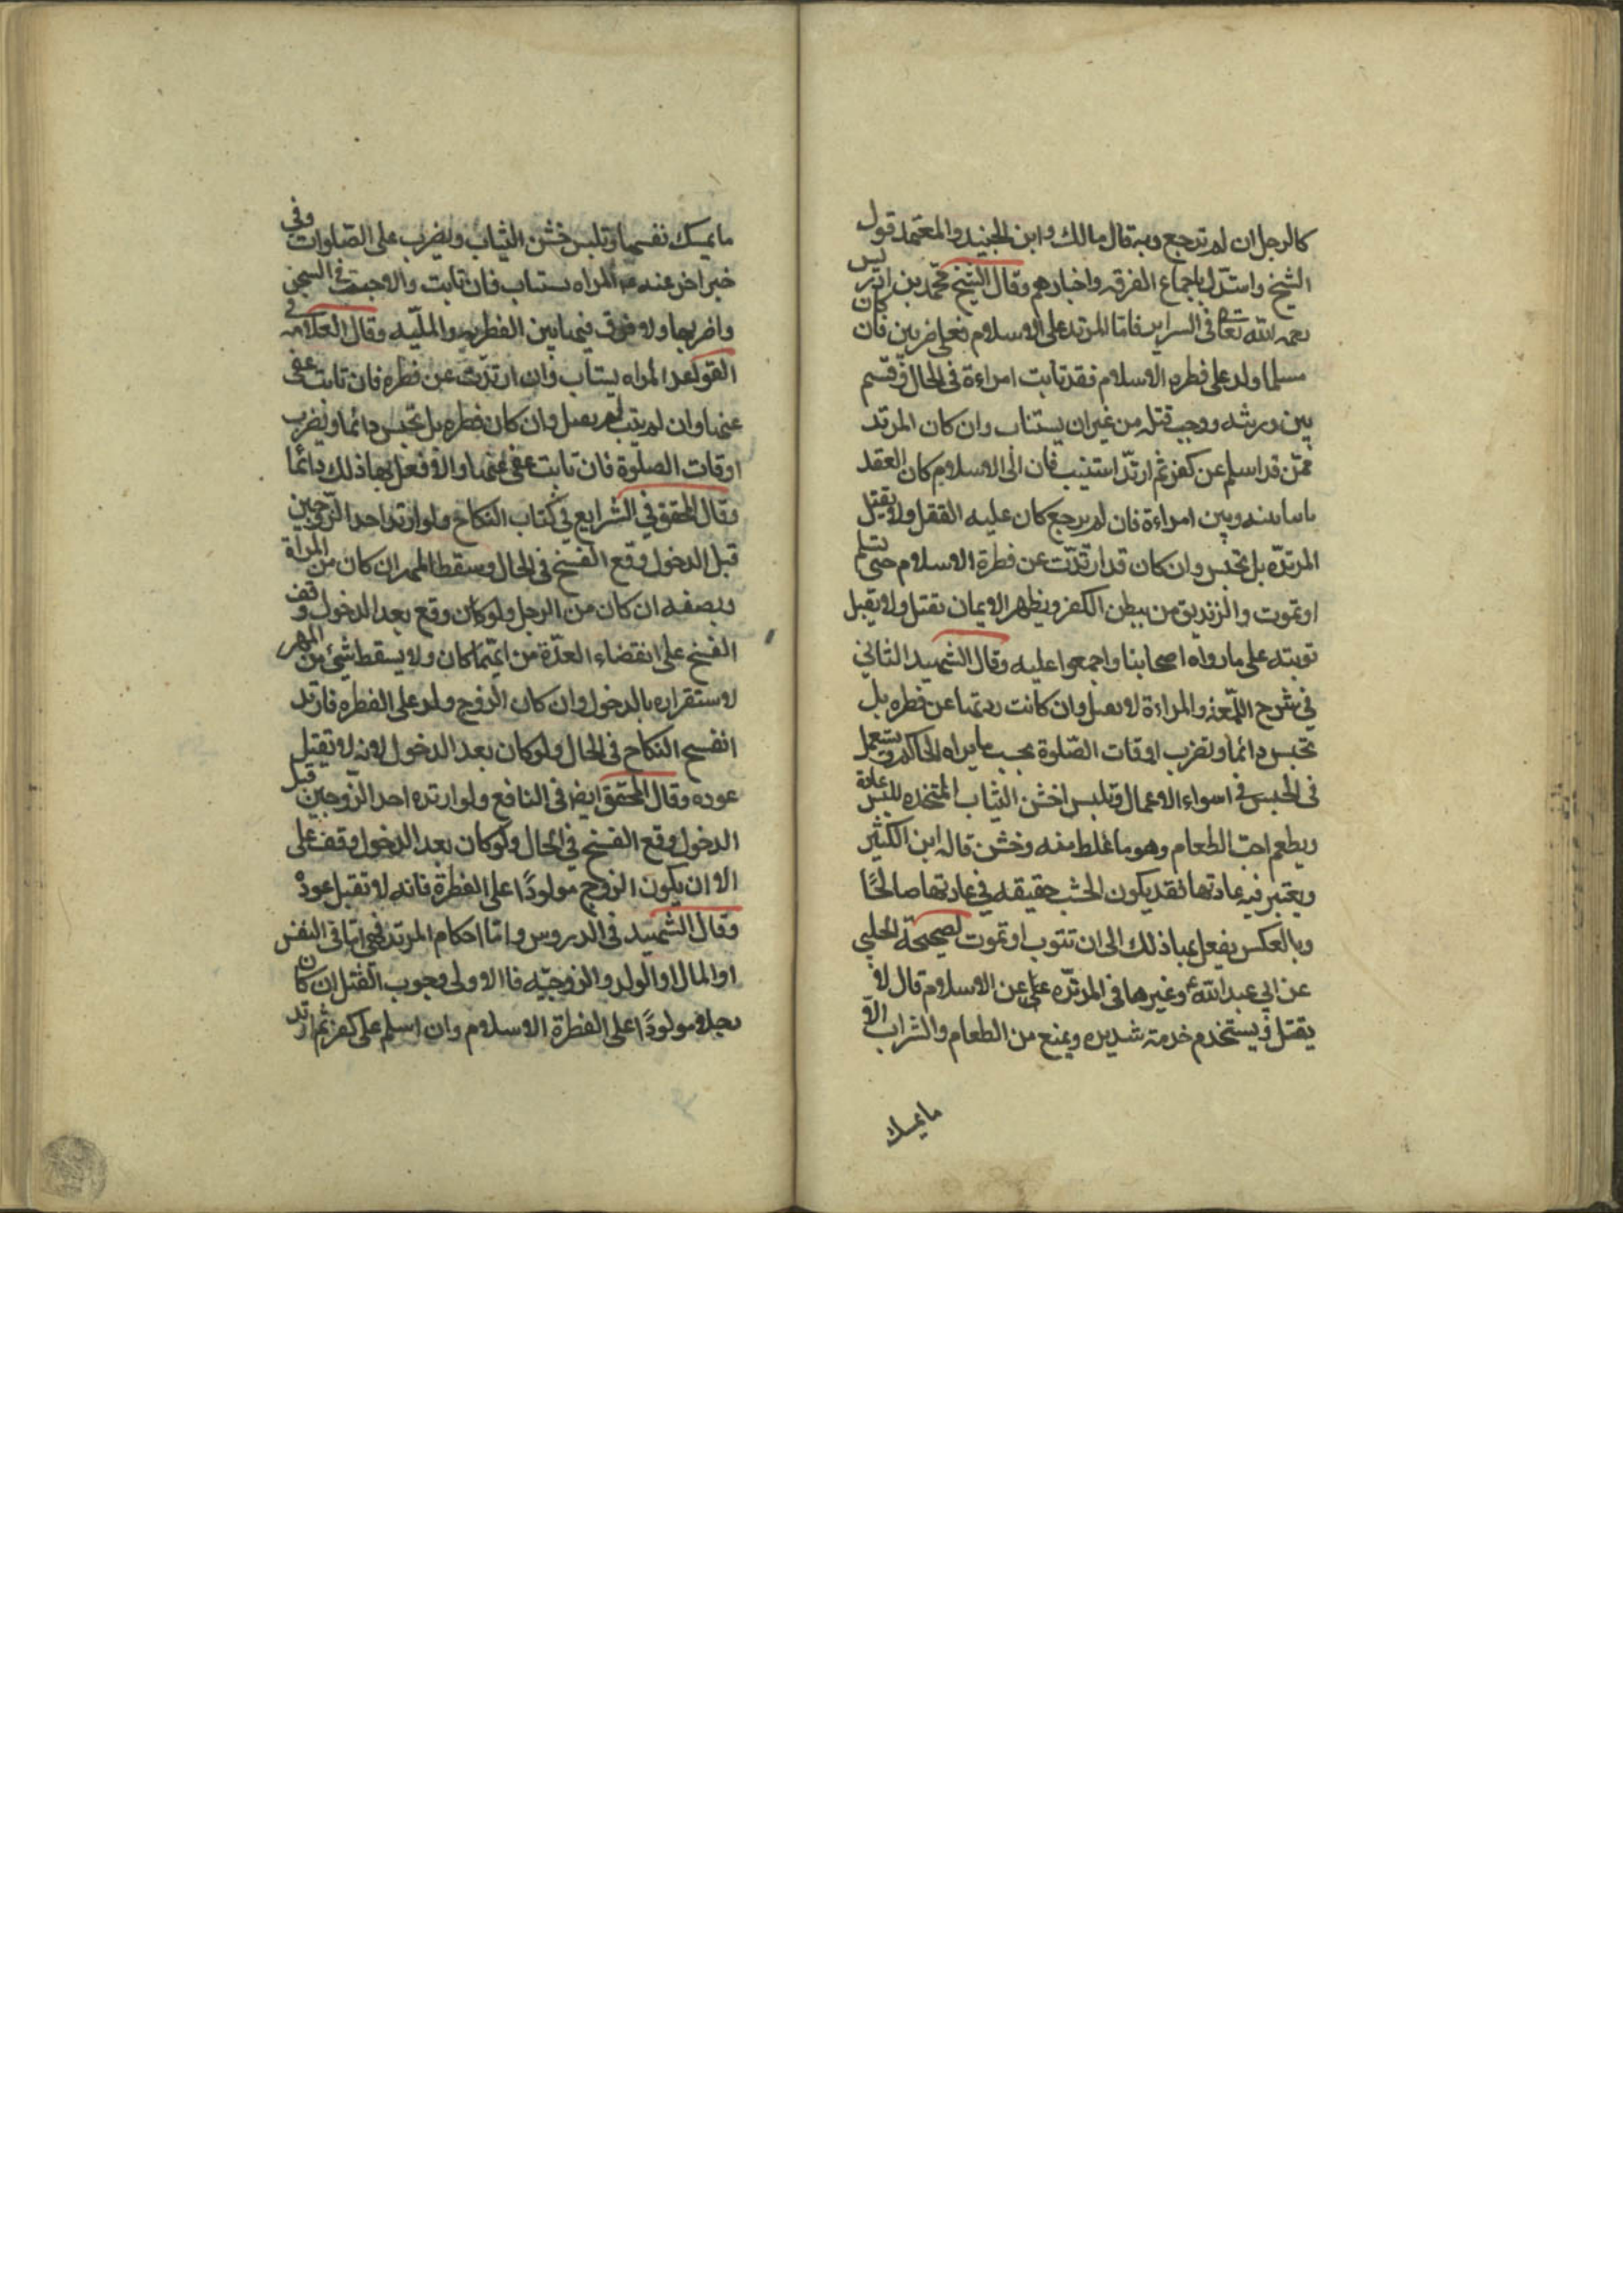 كالرجل ان لم ترجع وبه قال مالك وابن الجنيد والمعتمد قول
الشيخ واستدل باجماع الفرقه واخبارهم وقال الشيخ محمد بن ادريس
رحمه الله تعالى في السراير فاما المرتد على الاسلام فعلى ضربين فان كان
مسلما ولد على فطره الاسلام فقد بانت امراءة في الحال وقسم
بين ورثته ووجب قتله من غير ان يستتاب وان كان المرتد
ممن قد اسلم عن كفر ثم ارتد استتيب فان الى الاسلام كان العقد
بينه وبين امراءة فان لم يرجع كان عليه القتل ولا يقتل
المرتده بل تحبس وان كان قد ارتدت عن فطرة الاسلام حتى تسلم
او تموت والزنديق من يبطن الكفر ويظهر الايمان يقتل ولا يقبل
توبته على ما رواه اصحابنا واجمعوا عليه وقال الشهيد الثاني
في شرح اللمعه والمراءة لا تقتل وان كانت ردتها عن فطره بل
تحبس دائما وتضرب اوقات الصلوة بحسب ما يراه الحاكم وتستعمل
في الحبس في اسواء الاعمال وتلبس اخشن الثياب المتخذه للبس عادة
ويطعم اجشب الطعام وهو ما غلط منه وخشن قاله ابن الكثير
ويعتبر فيه عادتها فقد يكون الجشب حقيقه في عادتها صالحًا
وبالعكس يفعل بها ذلك الى ان تتوب او تموت لصحيحة الحلبي
عن ابي عبد الله ع وغيرها في المرتده عن الاسلام قال لا
يقتل ويستخدم خدمة شديده ويمنع من الطعام والشراب الا
ما يمسك
ما يمسك نفسها وتلبس خشن الثياب ويضرب على الصلوات وفي
خبر اخر عنه المراه تستتاب فان تابت والا وجبت في السجن
واضر بها ولا فرق فيها بين الفطريه والمليه وقال العلامه في
القواعد المراه يستتاب وان ارتدت عن فطره فان تابت عفى
عنها وان لم يتب لم يقتل وان كان فطره بل تحبس دائما ويضرب
اوقات الصلوة فان تابت عفى عنها والا فعل بها ذلك دائما
وقال المحقق في الشرايع في كتاب النكاح ولو ارتد احد الزوجين
قبل الدخول وقع الفسخ في الحال وسقط المهر ان كان من المراة
ونصفه ان كان من الرجل ولو كان وقع بعد الدخول وقف
الفسخ على انقضاء العدة من ايتهما كان ولا يسقط شئ من المهر
لاستقراره بالدخول وان كان الزوج ولد على الفطره فارتد
انفسخ النكاح في الحال ولو كان بعد الدخول لانه لا تقبل
عوده وقال المحقق ايضا في النافع ولو ارتده احد الزوجين قبل
الدخول وقع الفسخ في الحال ولو كان بعد الدخول وقف على
الا ان يكون الزوج مولودًا على الفطرة فانه لا تقبل عوده
وقال الشهيد في الدروس واما احكام المرتد فهي اما في النفس
او المال او الولد والزوجيه فالاولى وجوب القتل ان كان
رجلا مولودًا على الفطرة الاسلام وان اسلم على كفر ثم ارتد